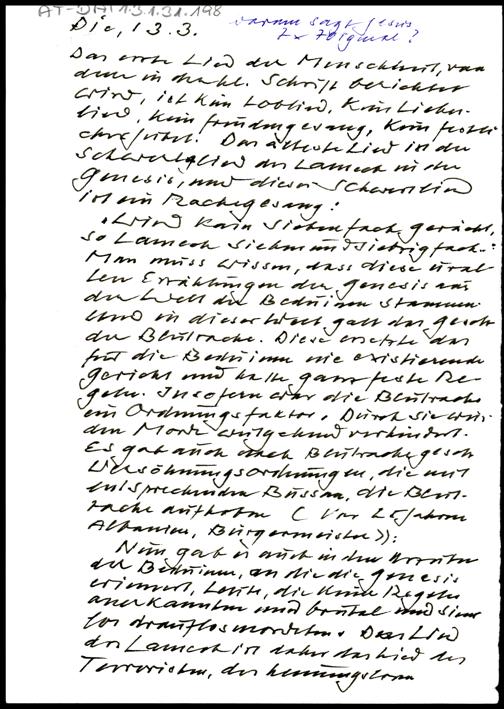 AT-DAI 1.3.1.31.198
warum sagt Jesus
7x 70 genau?
Die, 13.3.
Das erste Lied der Menschheit, von
dem in der hl. Schrift berichtet
wird, ist kein Loblied, kein Liebes-
lied, kein Freudengesang, kein festli-
ches Das älteste Lied ist das
Schwertlied des Lamech in der
Genesis, und dieses Schwertlied
ist ein Rachegesang:
"Wird Kain siebenfach gerächt,
so Lamech siebenundsiebzigfach"
Man muss wissen, dass diese ural-
ten Erzählungen der Genesis aus
der Welt der Beduinen stammen.
Und in dieser Welt galt das Gesetz
der Blutrache. Diese ersetzte das
für die Beduinen nie existierende
Gericht und hatte ganz feste Re-
geln. Insofern war die Blutrache
ein Ordnungsfaktor. Durch sie wur-
den Morde weitgehend verhindert.
Es gab auch nach Blutrachegesetz
Versöhnungsordnungen, die mit
entsprechenden Bussen, die Blut-
rache aufhoben (Vor 25 Jahren
Albanien, Bürgermeister):
Nun gab es auch in den
der Beduinen, an die die Genesis
erinnert, Leute, die keine Regeln
anerkannten und brutal und sinn-
los drauflosmordeten. Das Lied
des Lamech ist daher das Lied des
Terroristen, des hemmungslosen